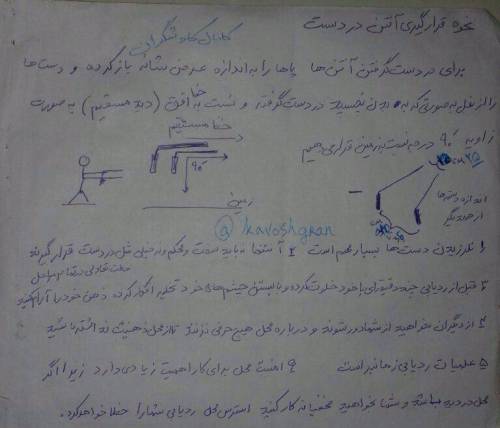 نحوه قرارگیری آنتن در دست
کانال کاوشگران
برای در دست گرفتن آنتن ها پاها را به اندازه عرض شانه باز کرده و دست ها
را از بغل به صورتی که به بدن نچسبد در دست گرفته و نسبت به خط افق (دید مستقیم) به صورت
زاویه ۹۰ درجه نسبت به زمین قرار می دهیم
خط مستقیم
۹۰
زمین
اندازه دستها
از همدیگر
@kavoshgran
۱ نلرزیدن دست ها بسیار مهم است ۲ آنتنها نباید سفت و محکم و نه خیلی شل در دست قرار گیرند
حالت عادی در تمام مراحل
۳ قبل از ردیابی چند دقیقه ای با خود خلوت کرده و با بستن چشم های خود تصور کرده ذهن خود را آرام کنید
۴ از دیگران خواهید از شما دور شوند و درباره محل هیچ حرفی نزنند تا از محل ذهنیت نداشته باشید
۵ عملیات ردیابی زمانبر است ۶ امنیت محل برای کار اهمیت زیادی دارد زیرا اگر
محل در دید باشد و شما بخواهید مخفیانه کار کنید استرس محل ردیابی شما را خطا خواهد کرد.